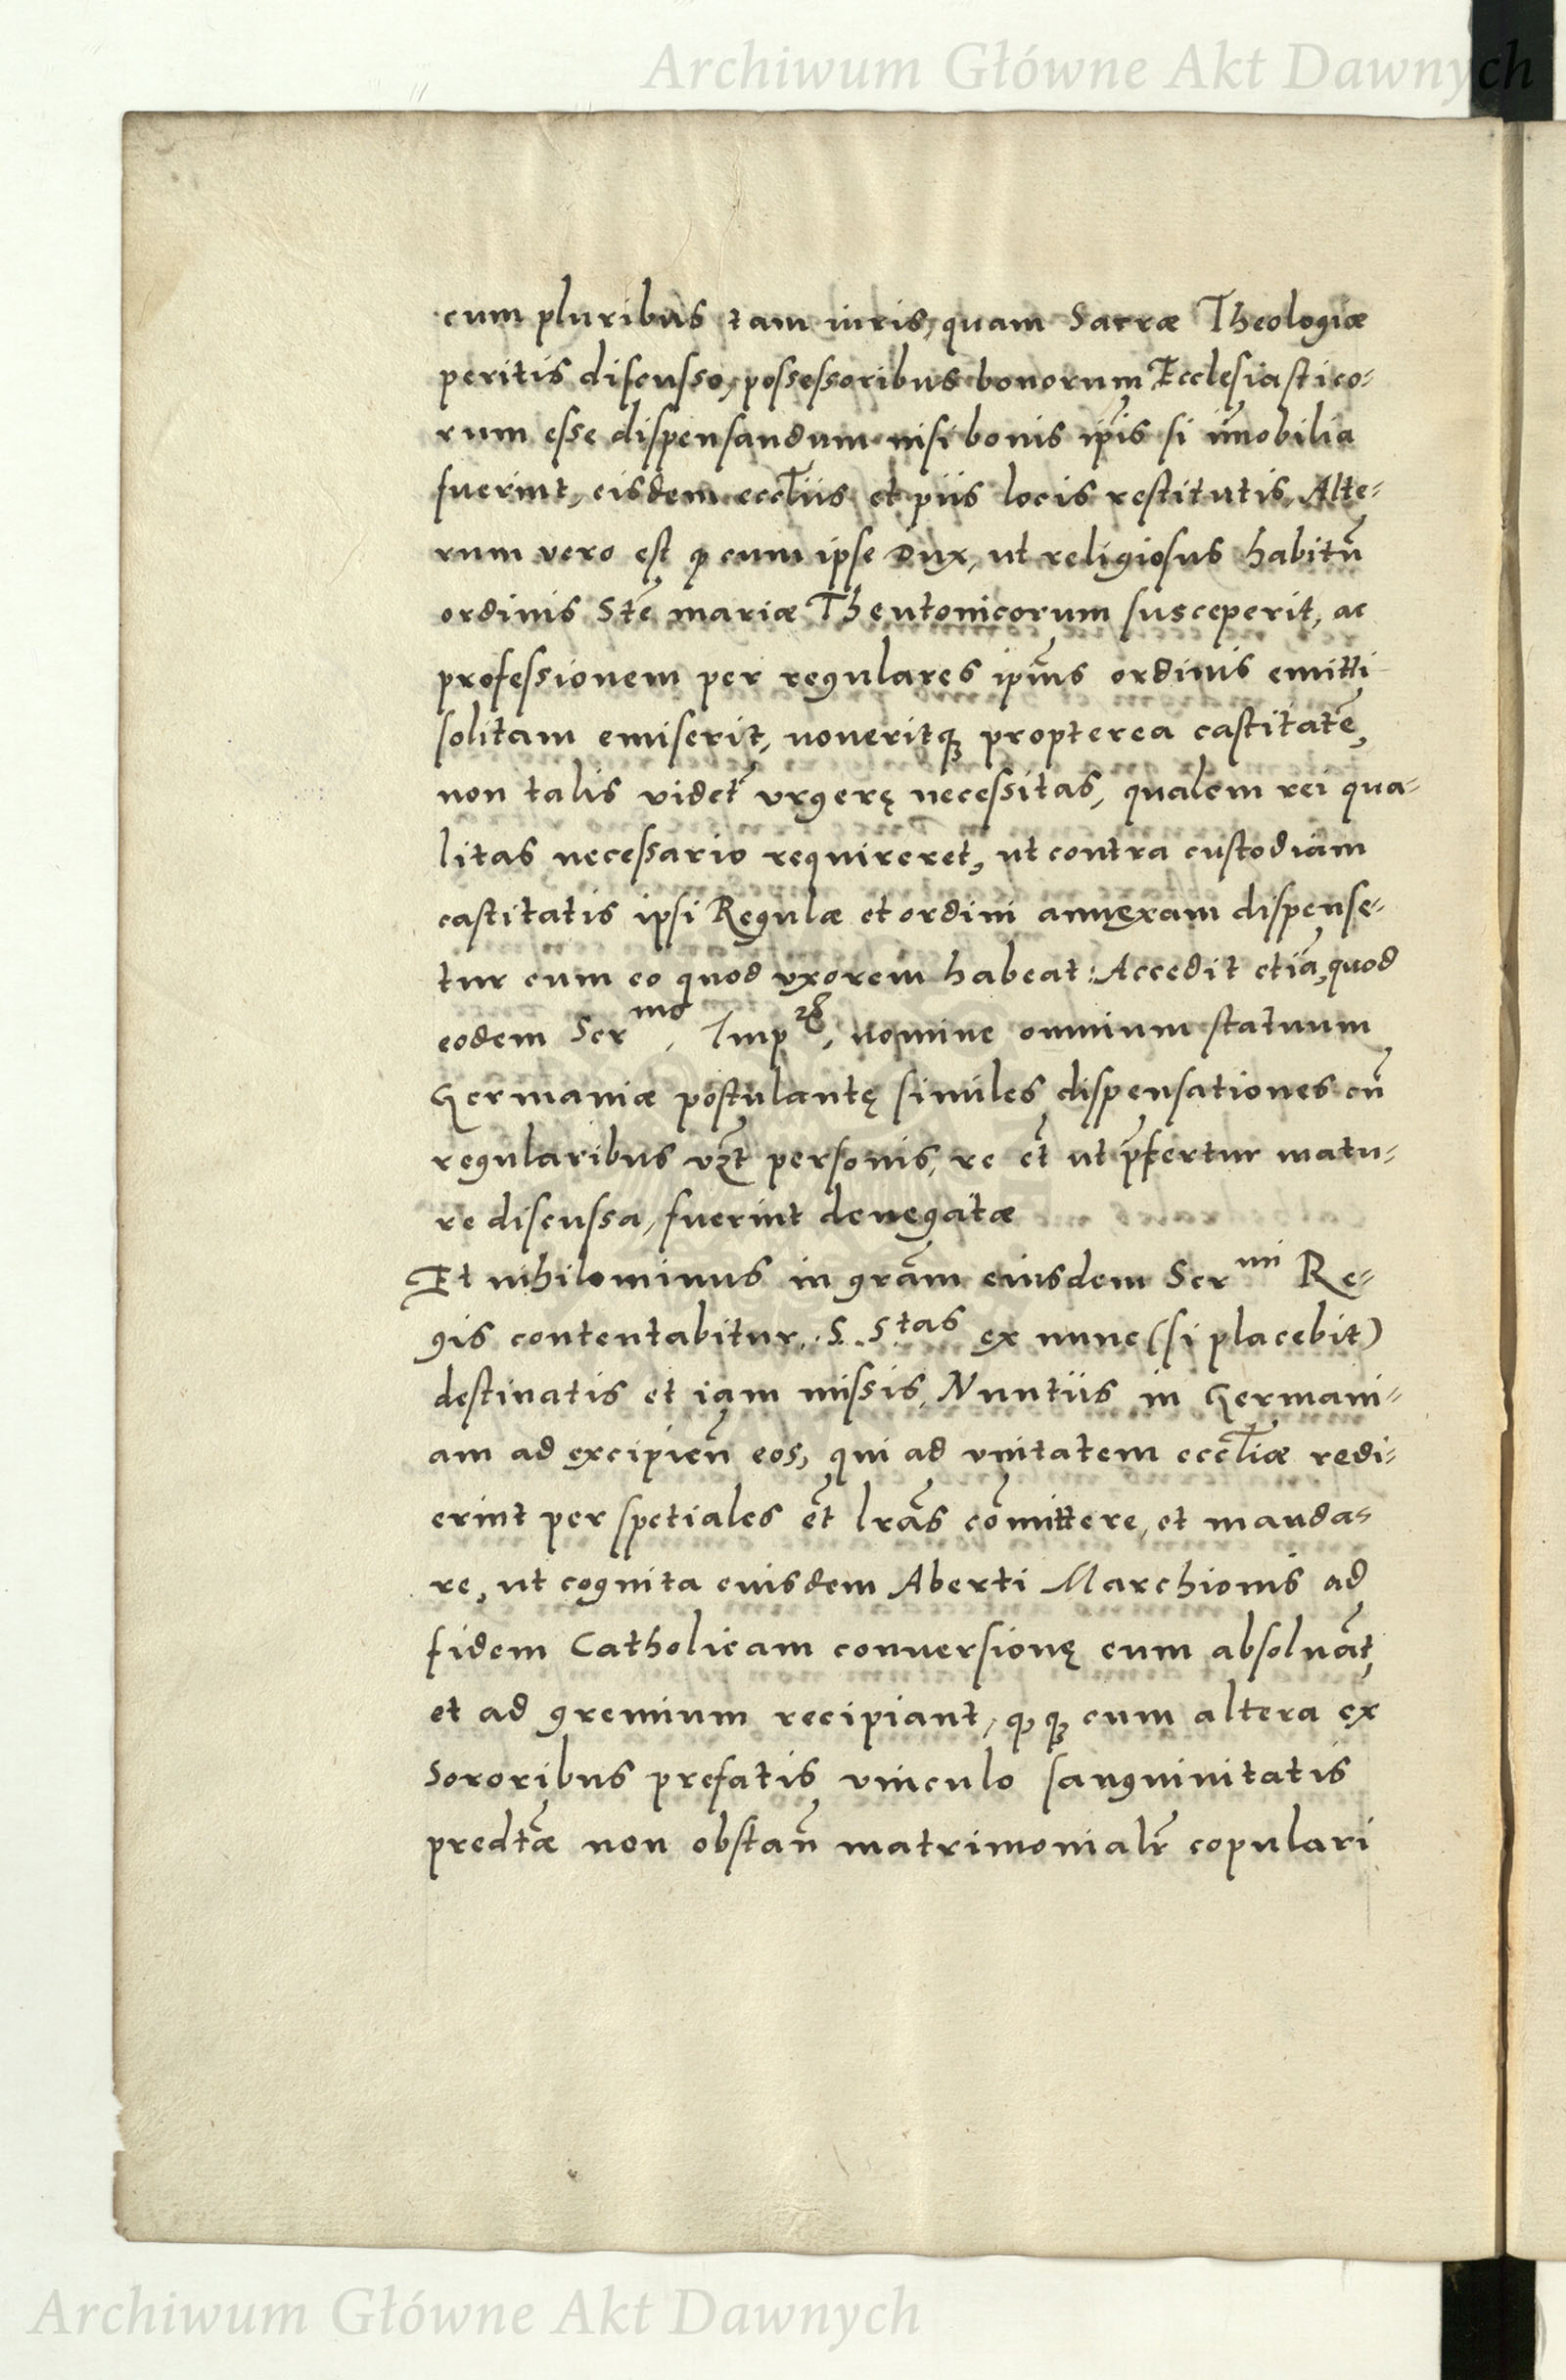 Archiwum Główne Akt Dawnych
cum pluribus tam iuris, quam Sacræ Theologiæ
peritis discusso, possessoribus bonorum Ecclesiastico-
rum esse dispensandum nisi bonis ip̃is si im̃obilia
fuerint, eisdem eccl̃iis et piis locis restitutis. Alte-
rum vero est ꝙ cum ipse Dux, ut religiosus habitũ
ordinis Stẽ mariæ Theutonicorum susceperit, ac
professionem per regulares ip̃ius ordinis emitti
solitam emiserit, voueritqꝫ propterea castitatẽ,
non talis videt̃ vrgerę necessitas, qualem rei qua-
litas necessario requireret, ut contra custodiam
castitatis ipsi Regulæ et ordini annęxam dispense-
tur cum eo quod vxorem habeat: Accedit etiã, quod
eodem Serᵐᵒ, Impʳᵉ, nomine omnium statuum
Germaniæ postulantę similes dispensationes cũ
regularibus vꝫt personis, re et̃ ut p̃fertur matu-
re discussa, fuerint denegatæ
Et nihilominus in grãm eiusdem Serᵐⁱ Re-
gis contentabitur. S. Sᵗᵃˢ ex nunc (si placebit)
destinatis et iam missis, Nuntiis in Germani-
am ad excipieñ eos, qui ad vnitatem eccl̃iæ redi-
erint per spetiales et̃ lrãs cõmittere, et manda-
re, ut cognita eiusdem Aberti Marchionis ad
fidem Catholicam conuersionę eum absoluãt,
et ad gremium recipiant, ꝙqꝫ cum altera ex
Sororibus prefatis vinculo sanguinitatis
predtæ̃ non obstañ matrimonialr̃ copulari
Archiwum Główne Akt Dawnych